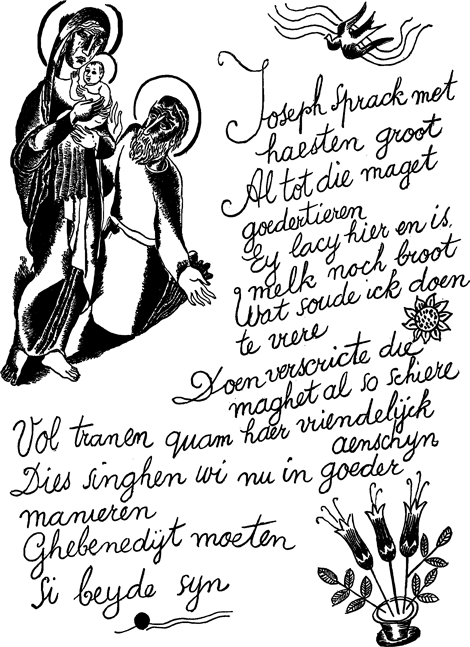 Joseph sprack met
haesten groot
Al tot die maget
goedertieren
Ey lacy hier en is
melk noch broot
Wat soude ick doen
te viere
Doen verscricte die
maghet al so schiere
Vol tranen quam haer vriendelijck
aenschyn
Dies singhen wi nu in goeder
manieren
Ghebenedijt moeten
si beyde syn